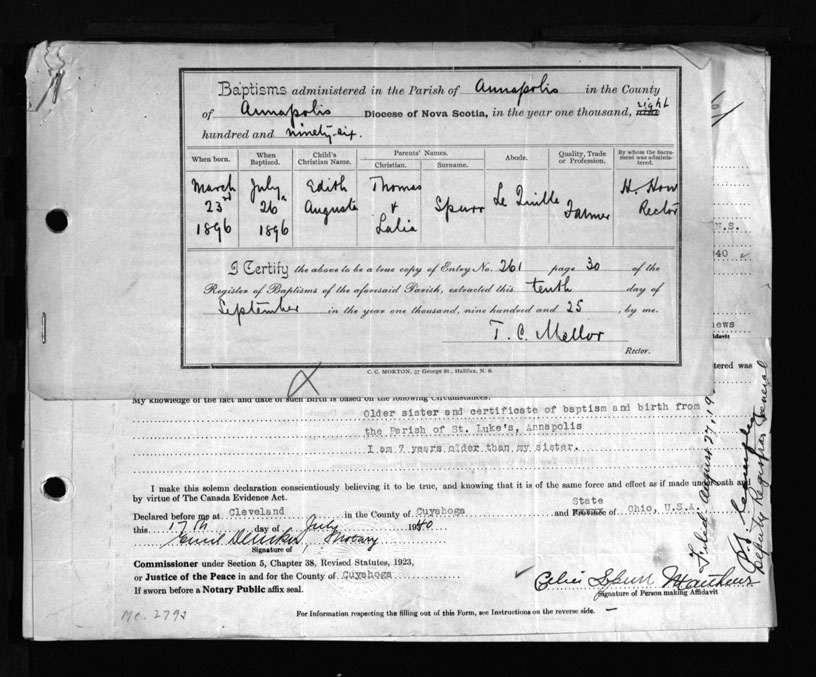 Baptisms administered in the Parish of Annapolis in the County
of Annapolis Diocese of Nova Scotia, in the year one thousand, nine eight
hundred and ninety-six.
When born. When Baptized. Child's Christian Name. Parents' Names. Christian. Surname. Abode. Quality, Trade or Profession. By whom the Sacrament was administered.
March 23rd 1896 July 26 1896 Edith Augusta Thomas & Lalia Spurr Le Quille Farmer H. How Rector
I Certify the above to be a true copy of Entry No. 261 page 30 of the
Register of Baptisms of the aforesaid Parish, extracted this tenth day of
September in the year one thousand, nine hundred and 25, by me.
T. C. Mellor
Rector.
C. C. MORTON, 57 George St., Halifax, N. S.
U.S.
40
hews
davit
tered was
My knowledge of the fact and date of such Birth is based on the following Circumstances:
Older sister and certificate of baptism and birth from
the Parish of St. Luke's, Annapolis
I am 7 years older than my sister.
I make this solemn declaration conscientiously believing it to be true, and knowing that it is of the same force and effect as if made under oath and
by virtue of The Canada Evidence Act.
Declared before me at Cleveland in the County of Cuyahoga and Province State of Ohio, U.S.A.
this 17th day of July 1940
Notary
Signature of
Commissioner under Section 5, Chapter 38, Revised Statutes, 1923,
or Justice of the Peace in and for the County of Cuyahoga
If sworn before a Notary Public affix seal.
Spurr Matthews
Signature of Person making Affidavit
For Information respecting the filling out of this Form, see Instructions on the reverse side.
Filed August 27, 19
Deputy Registrar General